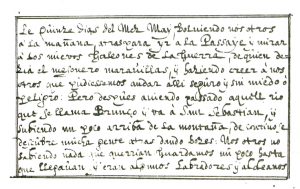 Le Quinze dias del Mez May Bolviendo nos otros
a la mañana, atras para yr a la Passaye y mirar
a los nuevos Galeones de la Guerra, de quien de
zia el mejonero maravillas, y haziendo creer a nos
otros que pudiessemos andar alli seguro y sin miedo o
peligro: Pero despues aviendo passado aquell rio
que se llama Brunço y va a Sant Sebastian, y
subiendo un poco arriba de la montaña, de contino se
descubre mucha gente atras dando bozes. Nos otros no
sabiendo nada que querrian Guardamos un poco hasta
que llegavan y eran algunos Labradores y aldeanos